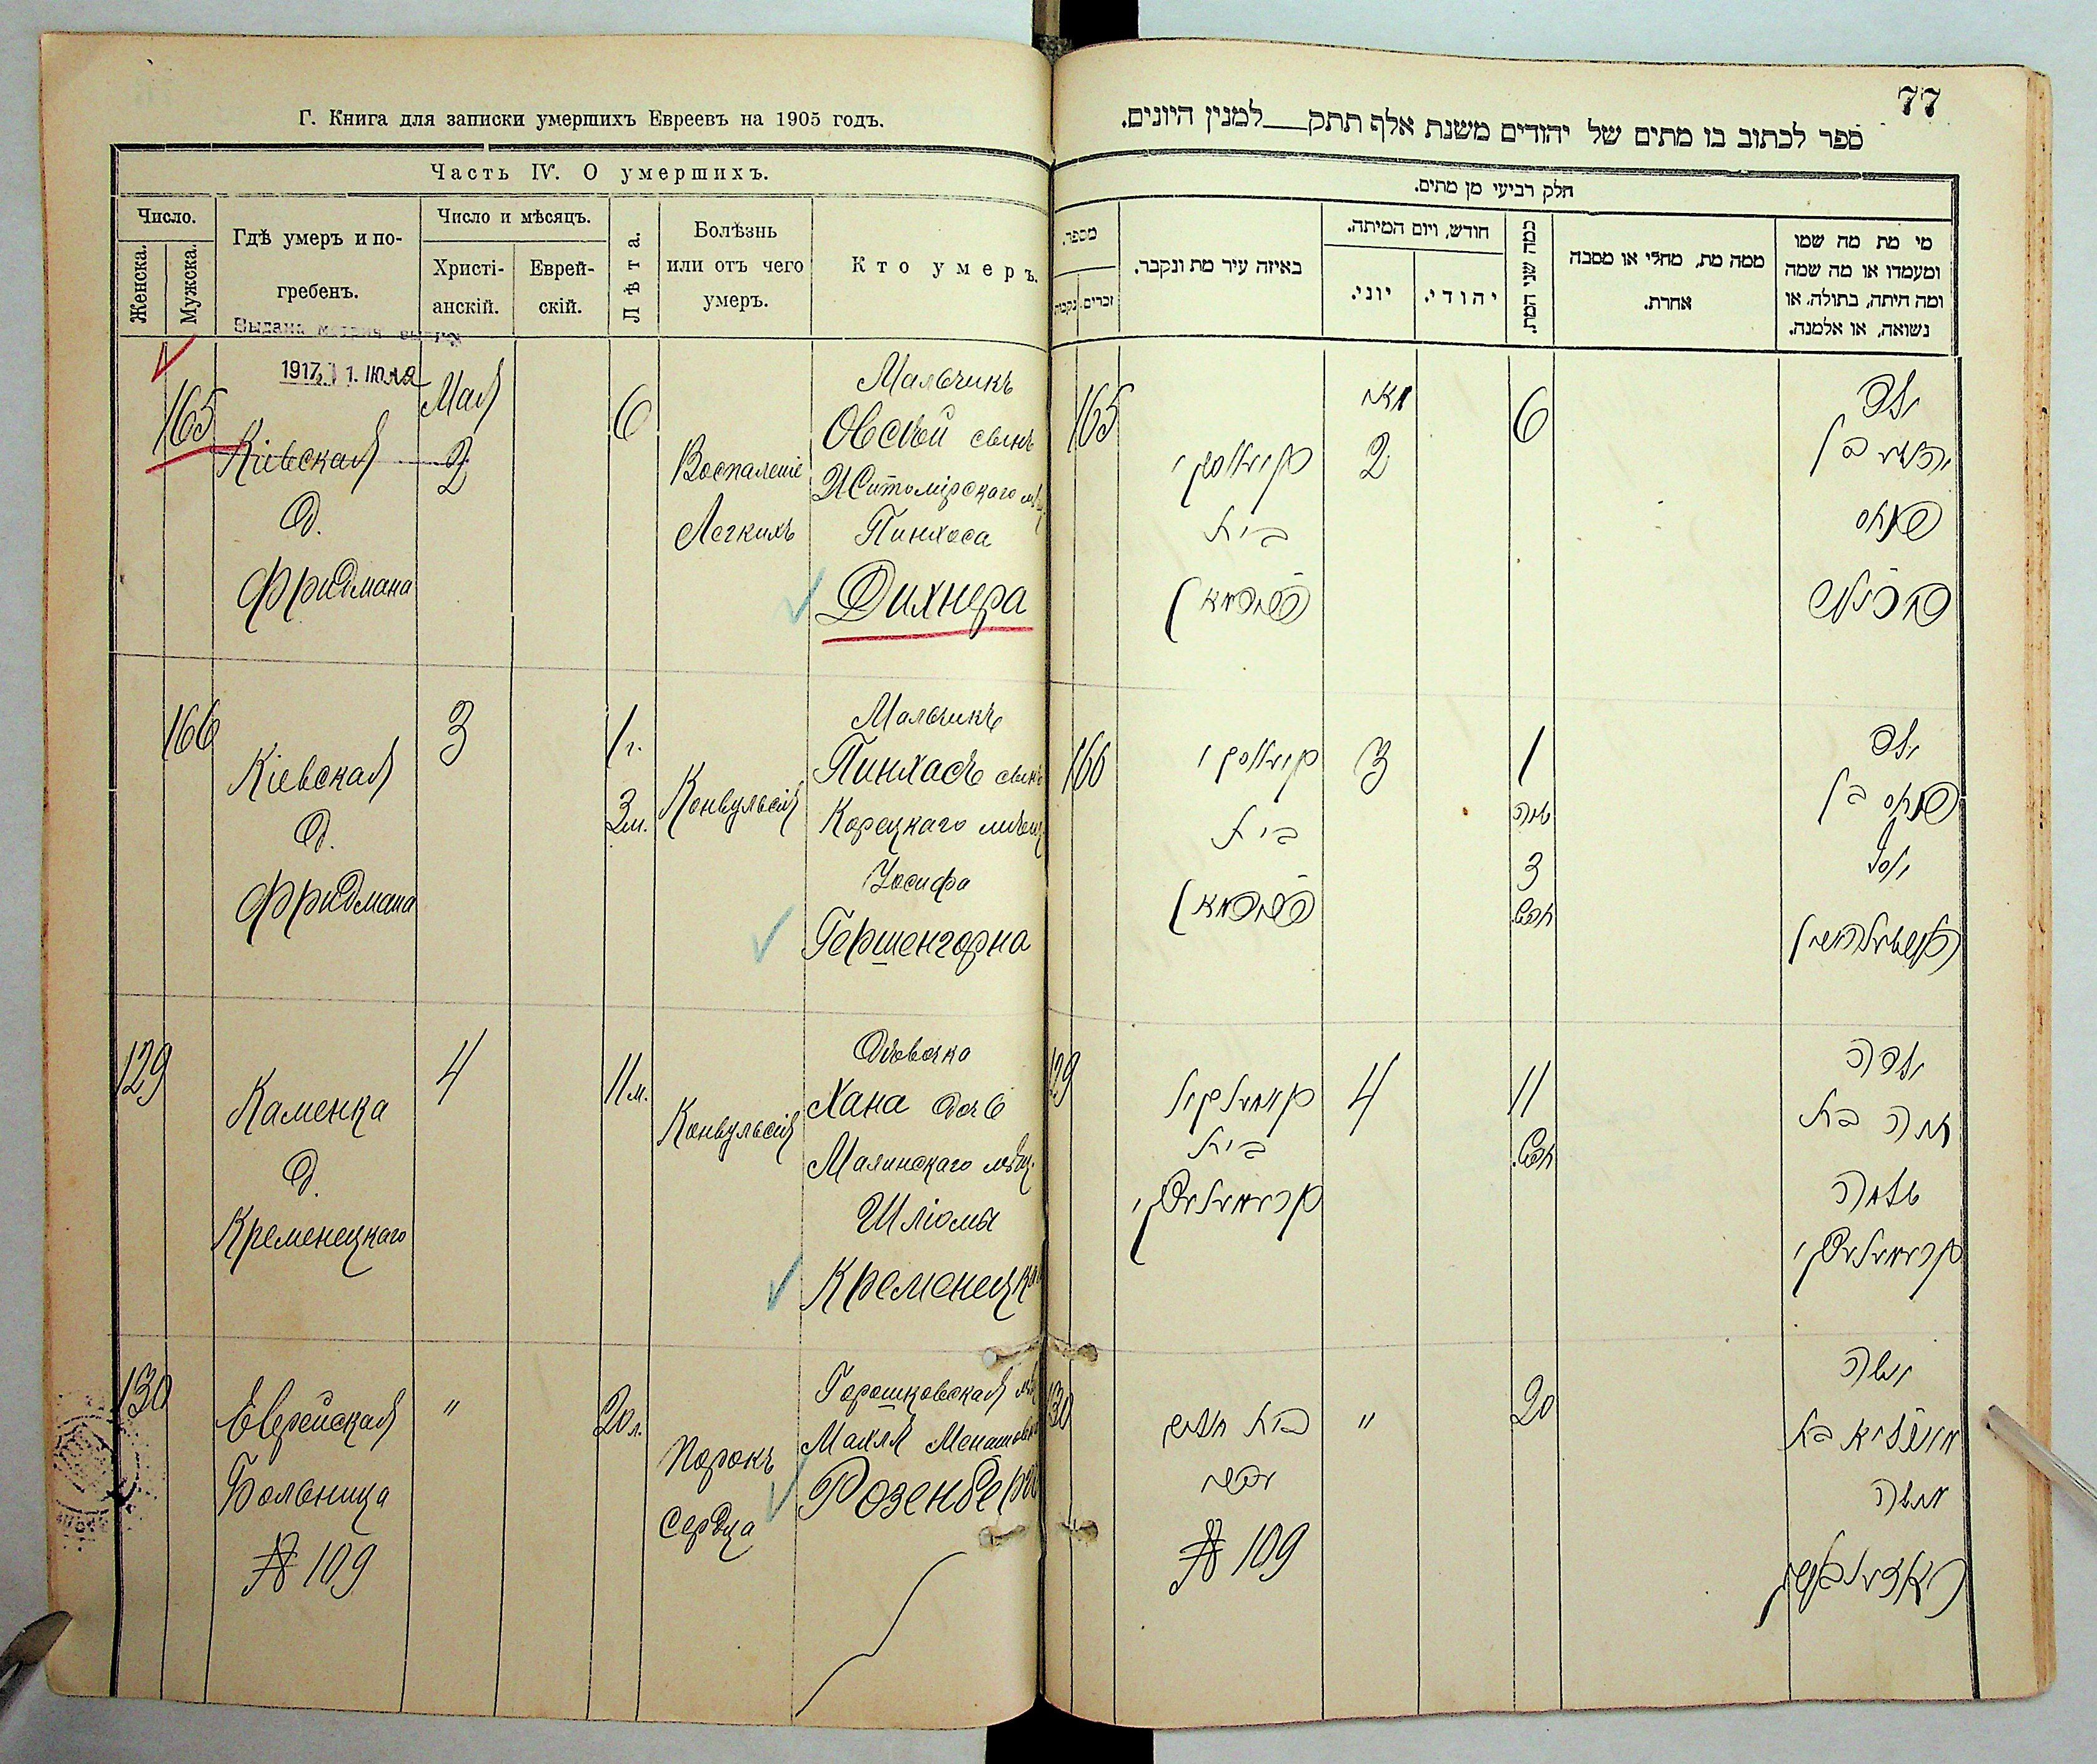 Г. Книга для записки умершихъ Евреевъ на 1905 годъ.
Часть IV. О умершихъ.
Число.
Женска.
Мужска.
Гдѣ умеръ и по-
гребенъ.
Число и мѣсяцъ.
Христі-
анскій.
Еврей-
скій.
Лѣта.
Болѣзнь
или отъ чего
умеръ.
Кто умеръ.
1917 1. ІЮЛЯ
165
Кіевская
д.
Фридмана
Мая
2
6
Воспаленіе
Легкихъ
Мальчикъ
Овсѣй сынъ
Житомірскаго мѣщ.
Пинхоса
Дихнера
166
Кіевская
д.
Фридмана
3
1 г.
3 м.
Конвульсія
Мальчикъ
Пинхасъ сынъ
Корецкаго мѣщ
Іосифа
Гершенгорна
129
Каменка
д.
Кременецкаго
4
11 м.
Конвульсія
Дѣвочка
Хана дочь
Малинскаго мѣщ.
Шліомы
Кременецкая
130
Еврейская
Больница
№ 109
"
20 л.
Порокъ
Сердца
Горошковская мѣщ
Махля
Розенберг
77
ספר לכתוב בו מתים של יהודים משנת אלף תתק למנין היונים.
חלק רביעי מן מתים.
מספר.
זכרים.
נקבות
באיזה עיר מת ונקבר.
חודש, ויום המיתה.
יוני.
יהודי.
כמה שני המת.
ממה מת, מחלי או מסבה
אחרת.
מי מת מה שמו
ומעמדו או מה שמה
ומה היתה, בתולה, או
נשואה, או אלמנה.
165
קיעווסקי
בית
פרידמאן
מאי
2
6
ילד
בן
פנחס
166
קיעווסקי
בית
פרידמאן
3
1
שנה
3
חדש.
ילד
פנחס בן
יוסף
129
בית
קרעמעניצקי
4
11
חדש.
ילדה
חנה בת
שלמה
קרעמעניצקי
130
בית חולים
№ 109
"
20
אשה
בת
מנשה
ראזענבערג